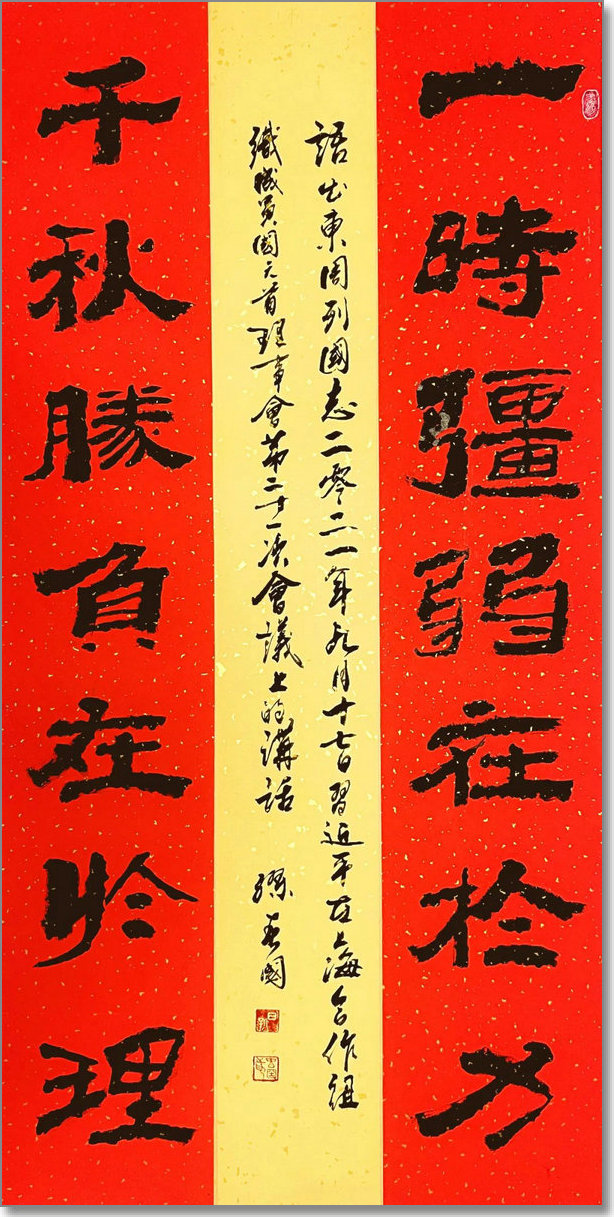 一時彊弱在於力
語出東周列國志二零二一年九月十七日習近平在上海合作組
織成員國元首理事會第二十一次會議上的講話
千秋勝負在於理